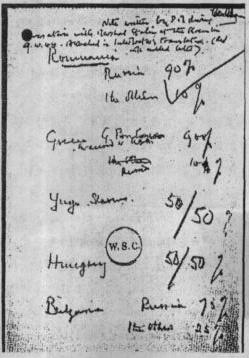 Note written by P.M during
conversation with Marshal Stalin at the Kremlin
9.10.44. Attached is Interpreter's Translation.
Roumania
Russia 90%
The others 10%
Greece G. Britain 90%
in accord with USA
Russia 10%
Yugo Slavia. 50/50%
W.S.C.
Hungary 50/50%
Bulgaria Russia 75%
The others 25%